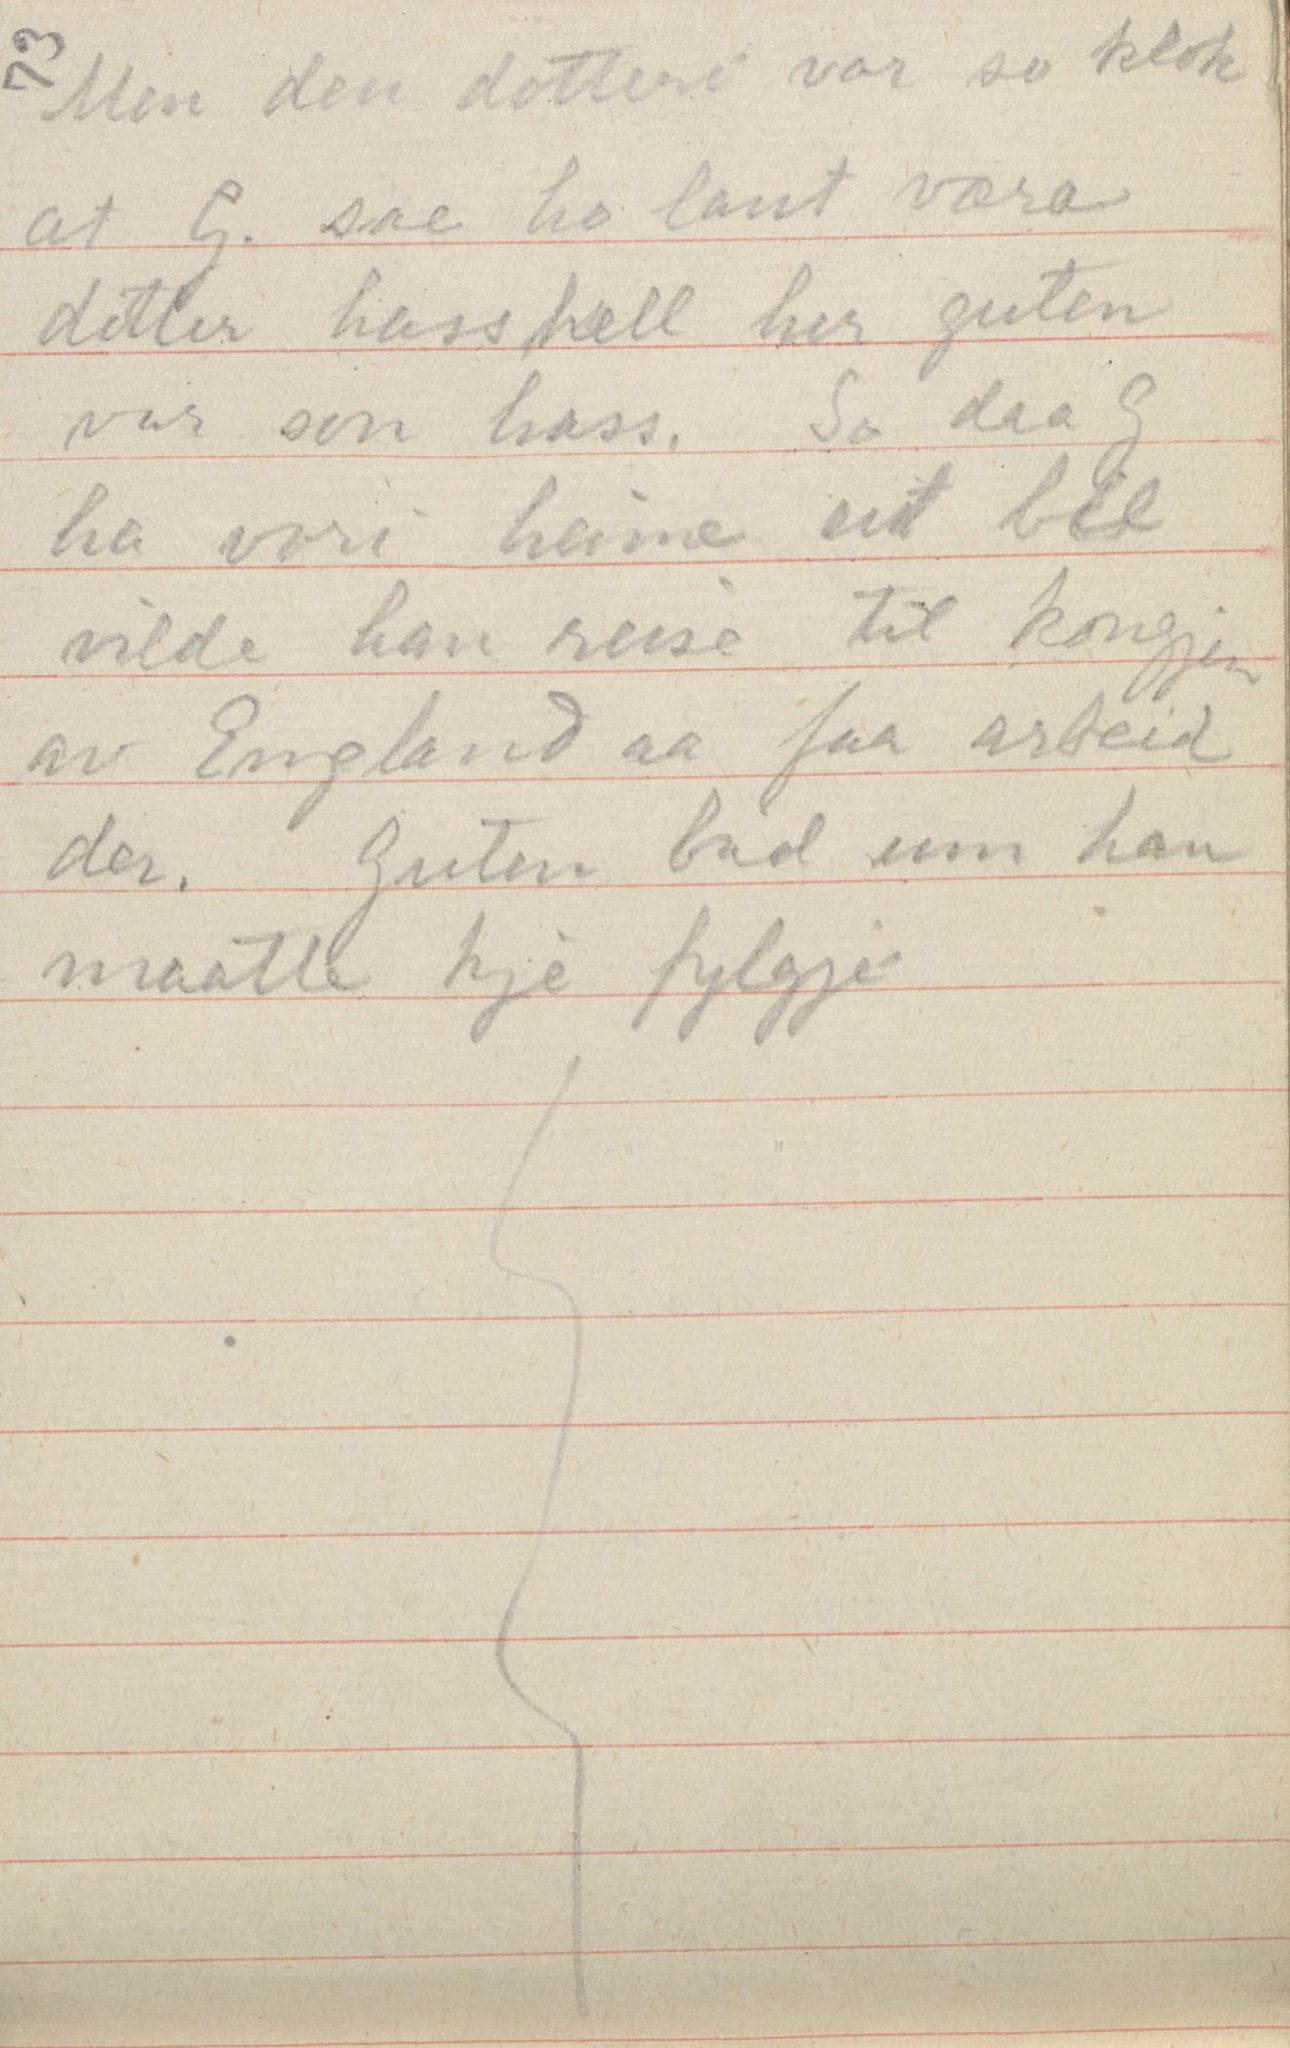 73
Men den dotteri var so klok
at G. sae ho laut væra
dotter hass hell her guten
var son hass. So daa G
ha vori heime eit bel
vilde han reise til kongjen
av England aa faa arbeid
der. Guten bad um han
maatte kje fylgje